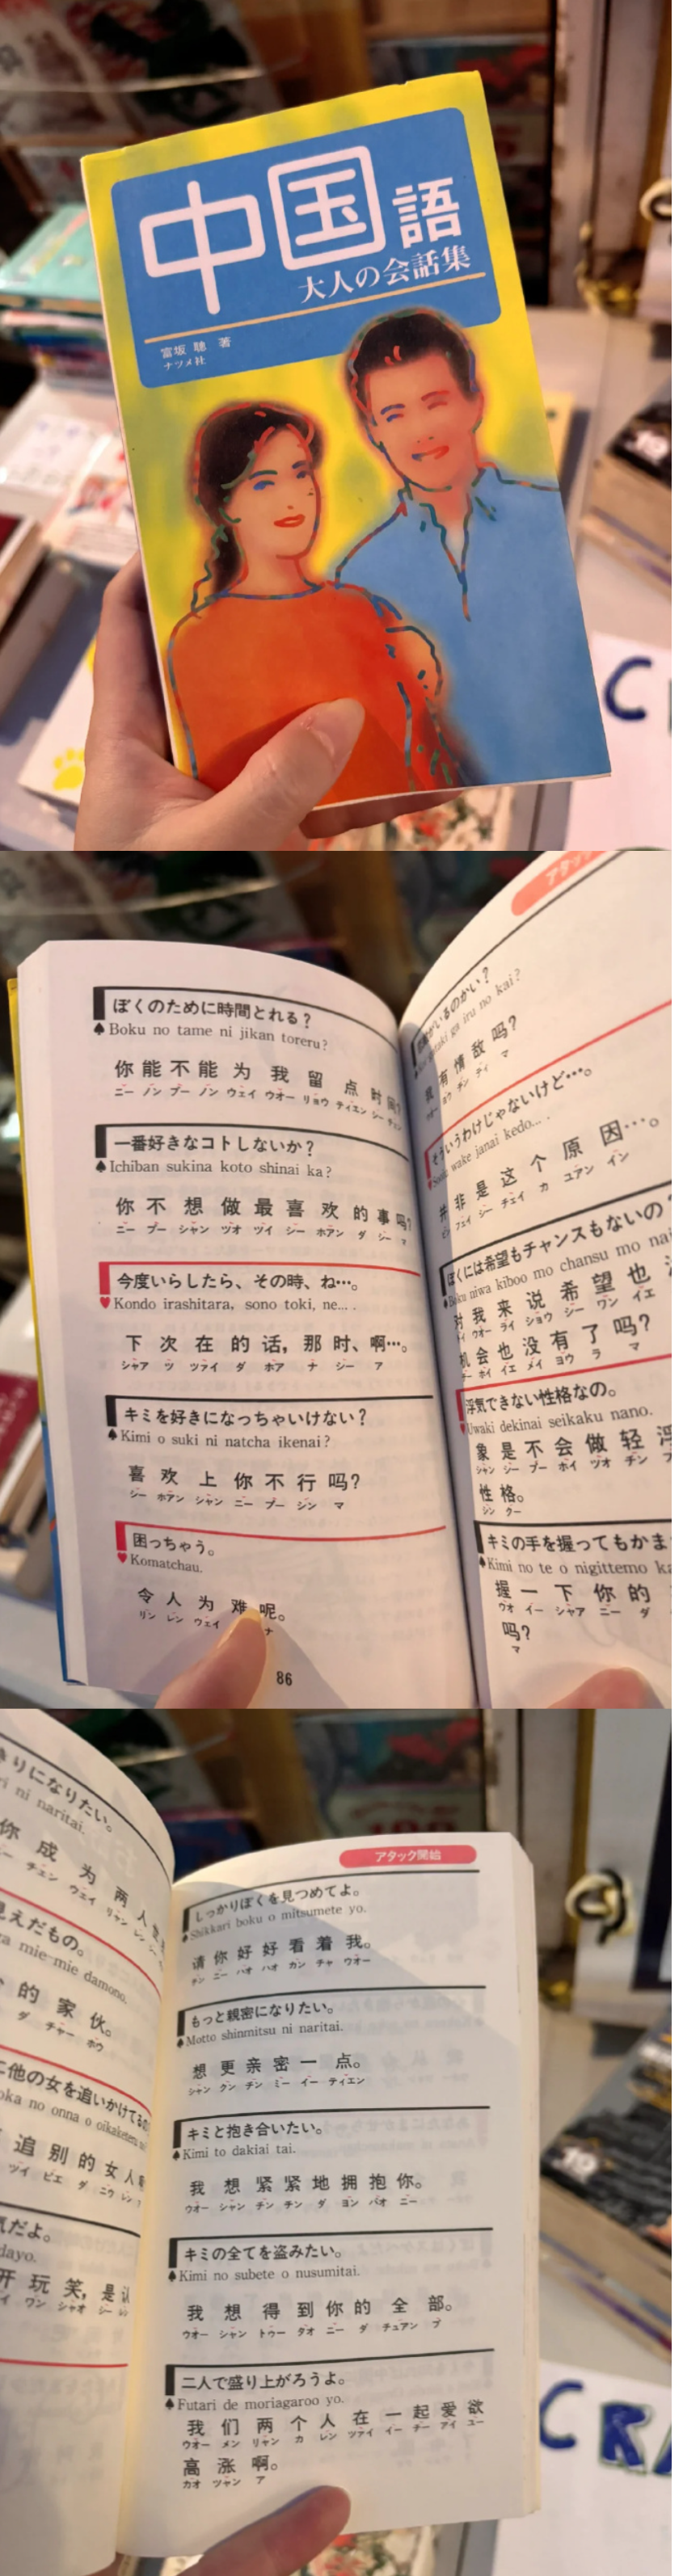 中国語
大人の会話集
富坂 聰 著
ナツメ社
ぼくのために時間とれる？
Boku no tame ni jikan toreru?
你能不能为我留点时间?
ニー ノン プー ノン ウェイ ウオー リョウ ティエン シー チェン
一番好きなコトしないか？
Ichiban sukina koto shinai ka?
你不想做最喜欢的事吗?
ニー プー シャン ツオ ツイ シー ホアン ダ シー マ
今度いらしたら、その時、ね…。
Kondo irashitara, sono toki, ne... .
下次在的话，那时、啊…。
シャア ツ ツァイ ダ ホア ナ シー ア
キミを好きになっちゃいけない？
Kimi o suki ni natcha ikenai?
喜欢上你不行吗?
シー ホアン シャン ニー プー シン マ
困っちゃう。
Komatchau.
令人为难呢。
リン レン ウェイ ナ
86
アタッ
がいるのかい？
ga iru no kai?
我有情敌吗?
ウオー ヨウ チン ティ マ
そういうわけじゃないけど…。
wake janai kedo... .
并非是这个原因…。
フェイ シー チェイ カ ユアン イン
ぼくには希望もチャンスもないの
Boku niwa kiboo mo chansu mo nai
对我来说希望也
ウオー ライ ショウ シー ワン イエ
机会也没有了吗?
ホイ イエ メイ ヨウ ラ マ
浮気できない性格なの。
Uwaki dekinai seikaku nano.
象是不会做轻浮
シャン シー プー ホイ ツオ チン
性格。
シン クー
キミの手を握ってもかま
Kimi no te o nigittemo ka
握一下你的
ウオ イー シャア ニー ダ
吗?
マ
きりになりたい。
ri ni naritai.
你成为两人
チェン ウェイ リャン レン
見えだもの。
ra mie-mie damono.
的家伙。
ダ チャー ホウ
に他の女を追いかけてるの
oka no onna o oikaketeru
追别的女人
ツイ ビエ ダ ニウ レン
気だよ。
dayo.
开玩笑，是认
ワン シャオ シー レン
アタック開始
しっかりぼくを見つめてよ。
Shikkari boku o mitsumete yo.
请你好好看着我。
チン ニー ハオ ハオ カン チャ ウオー
もっと親密になりたい。
Motto shinmitsu ni naritai.
想更亲密一点。
シャン クン チン ミー イー ティエン
キミと抱き合いたい。
Kimi to dakiai tai.
我想紧紧地拥抱你。
ウオー シャン チン チン ダ ヨン パオ ニー
キミの全てを盗みたい。
Kimi no subete o nusumitai.
我想得到你的全部。
ウオー シャン トゥー タオ ニー ダ チュアン プ
二人で盛り上がろうよ。
Futari de moriagaroo yo.
我们两个人在一起爱欲
ウオー メン リャン カ レン ツァイ イー チー アイ ユー
高涨啊。
カオ ツャン ア